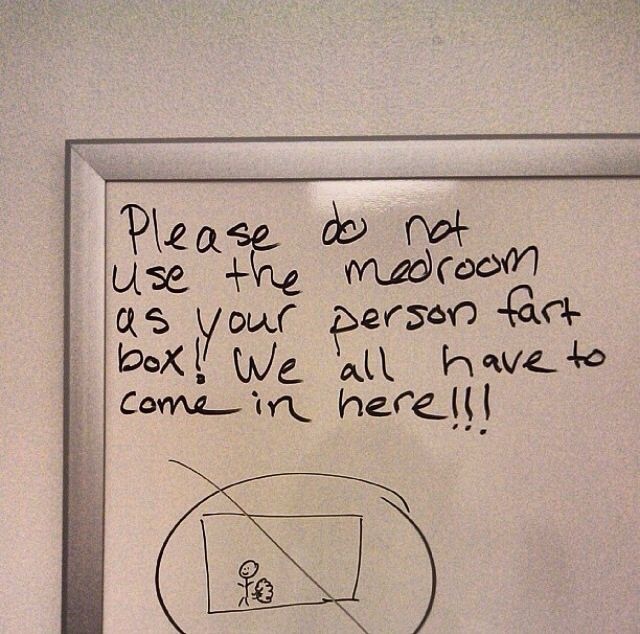 Please do not
use the medroom
as your person fart
box! We all have to
come in here!!!